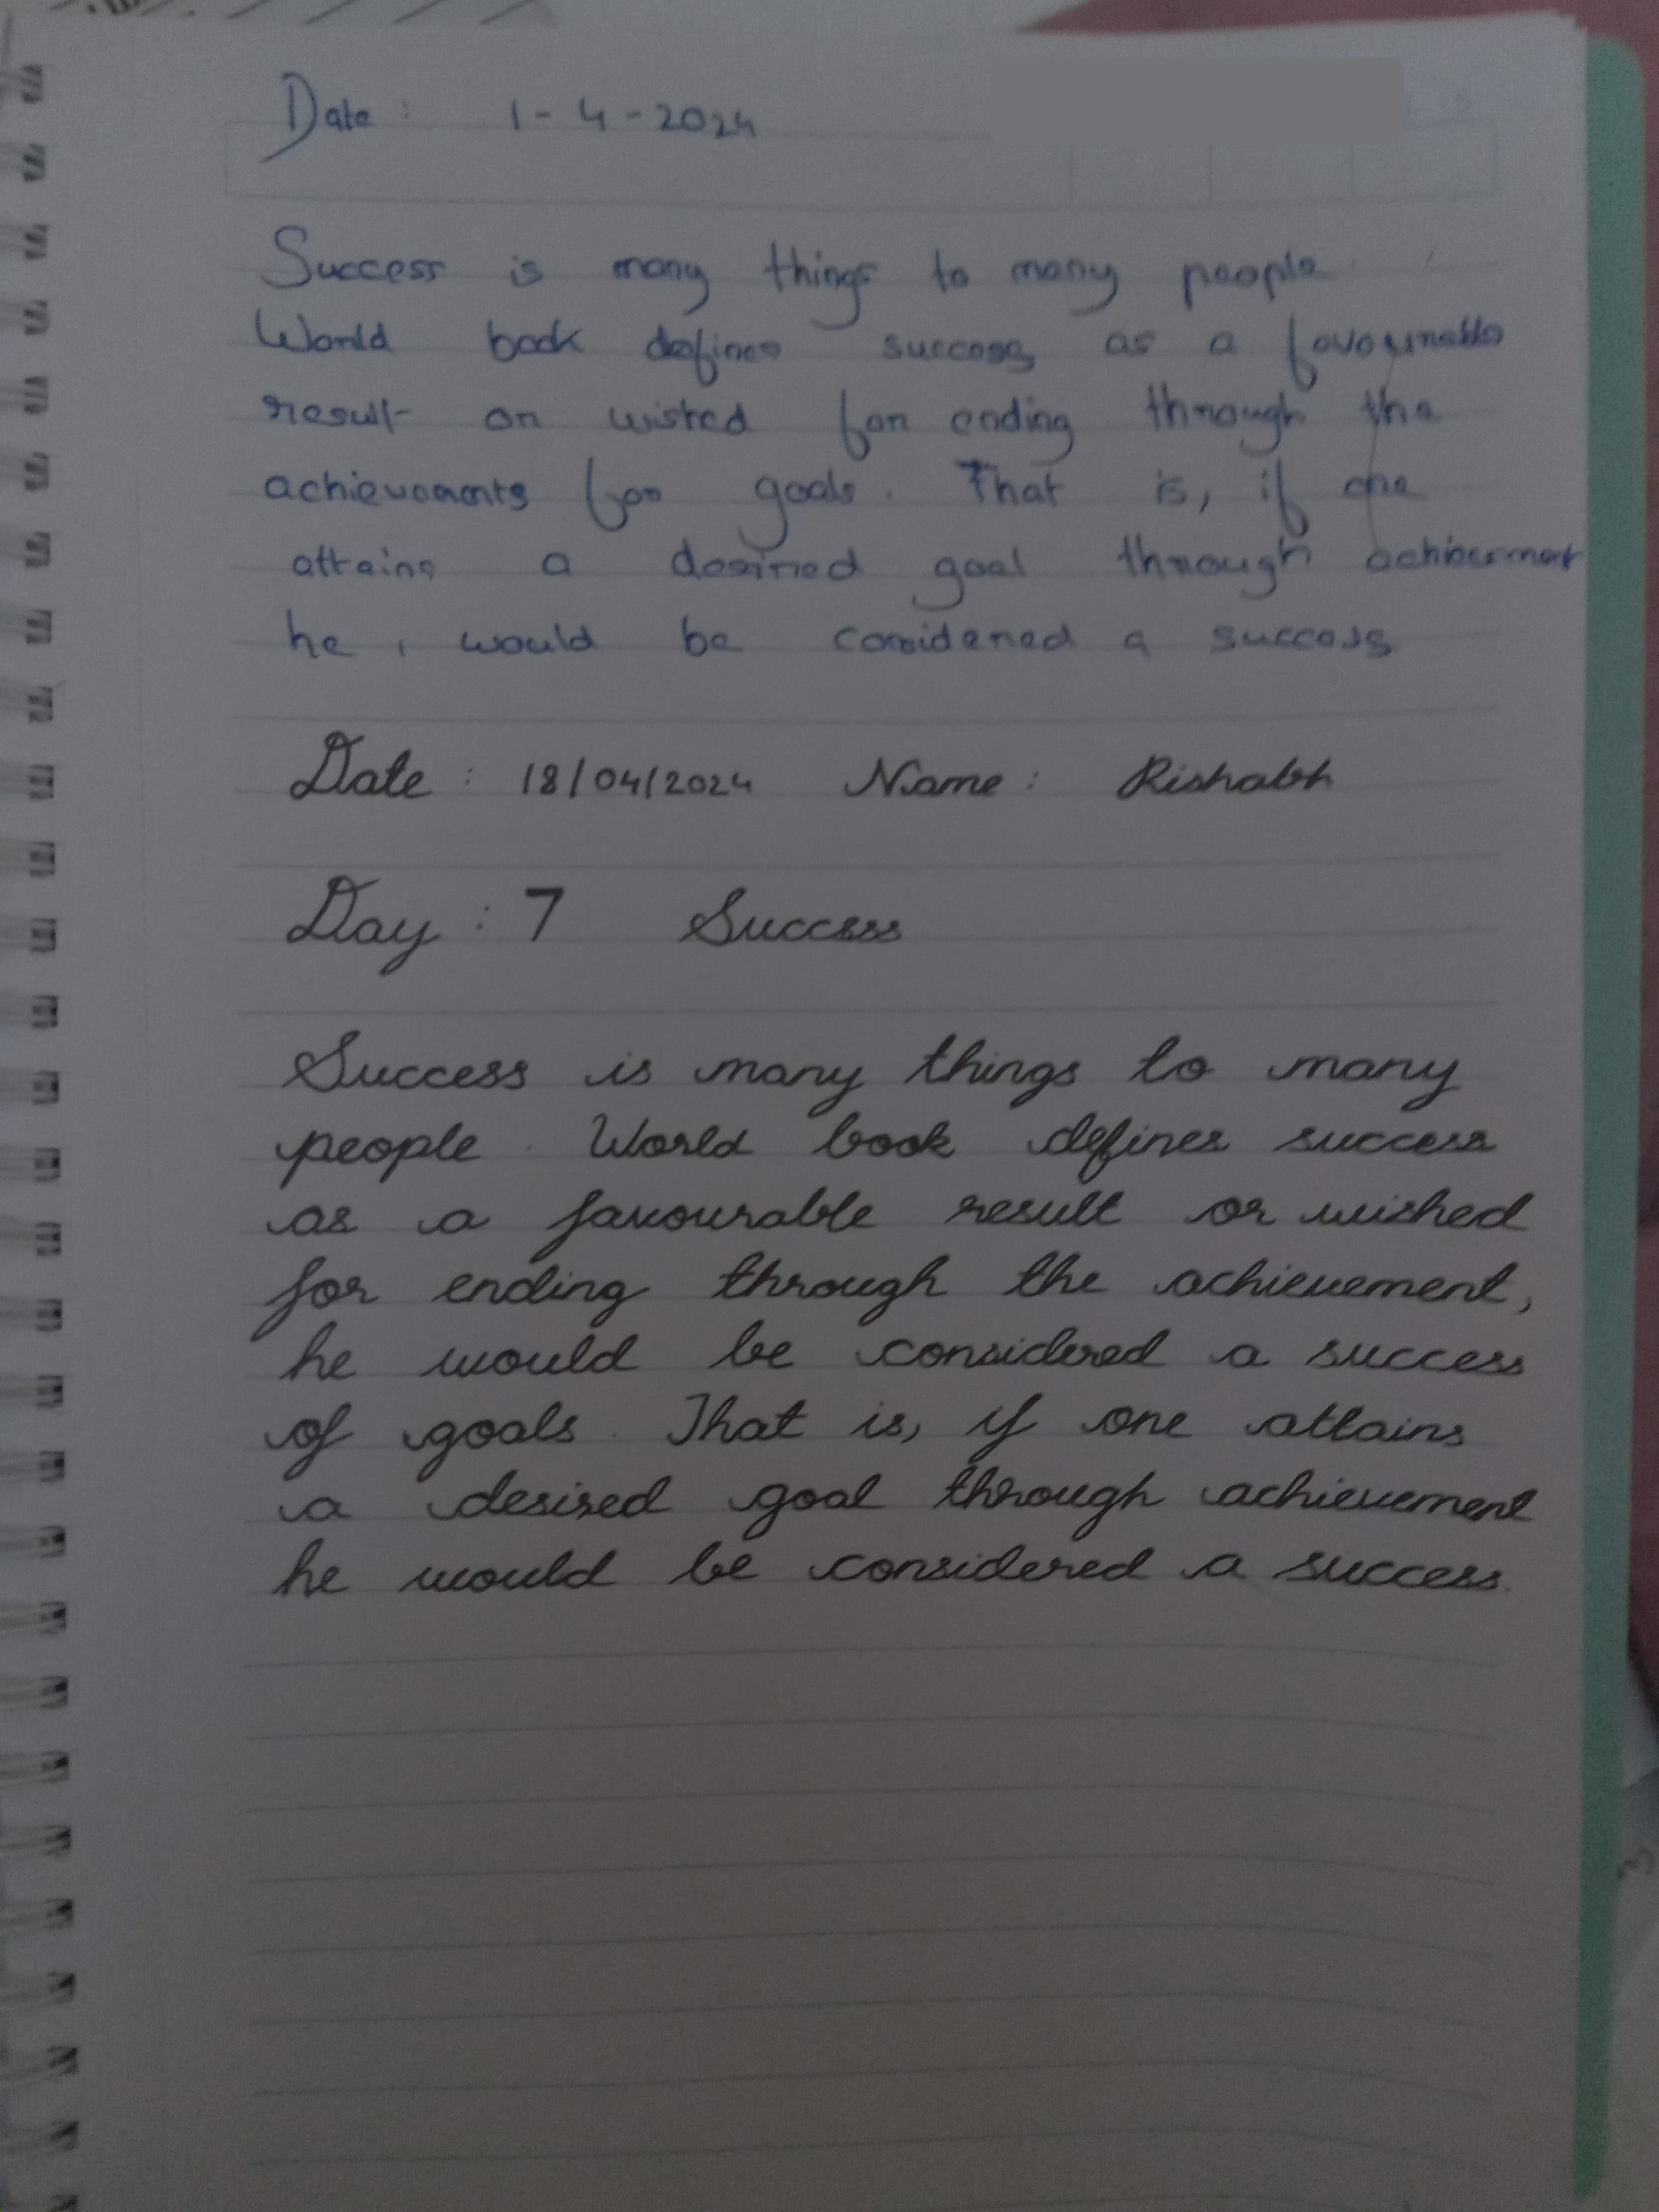 Date : 1-4-2024
Success is many things to many people
World book defines success as a favourable
result or wished for ending through the
achievements for goals. That is, if one
attains a desired goal through achievement
he, would be considered a success
Date : 18/04/2024 Name : Rishabh
Day : 7 Success
Success is many things to many
people. World book defines success
as a favourable result or wished
for ending through the achievement,
he would be considered a success
of goals. That is, if one attains
a desired goal through achievement
he would be considered a success.
3